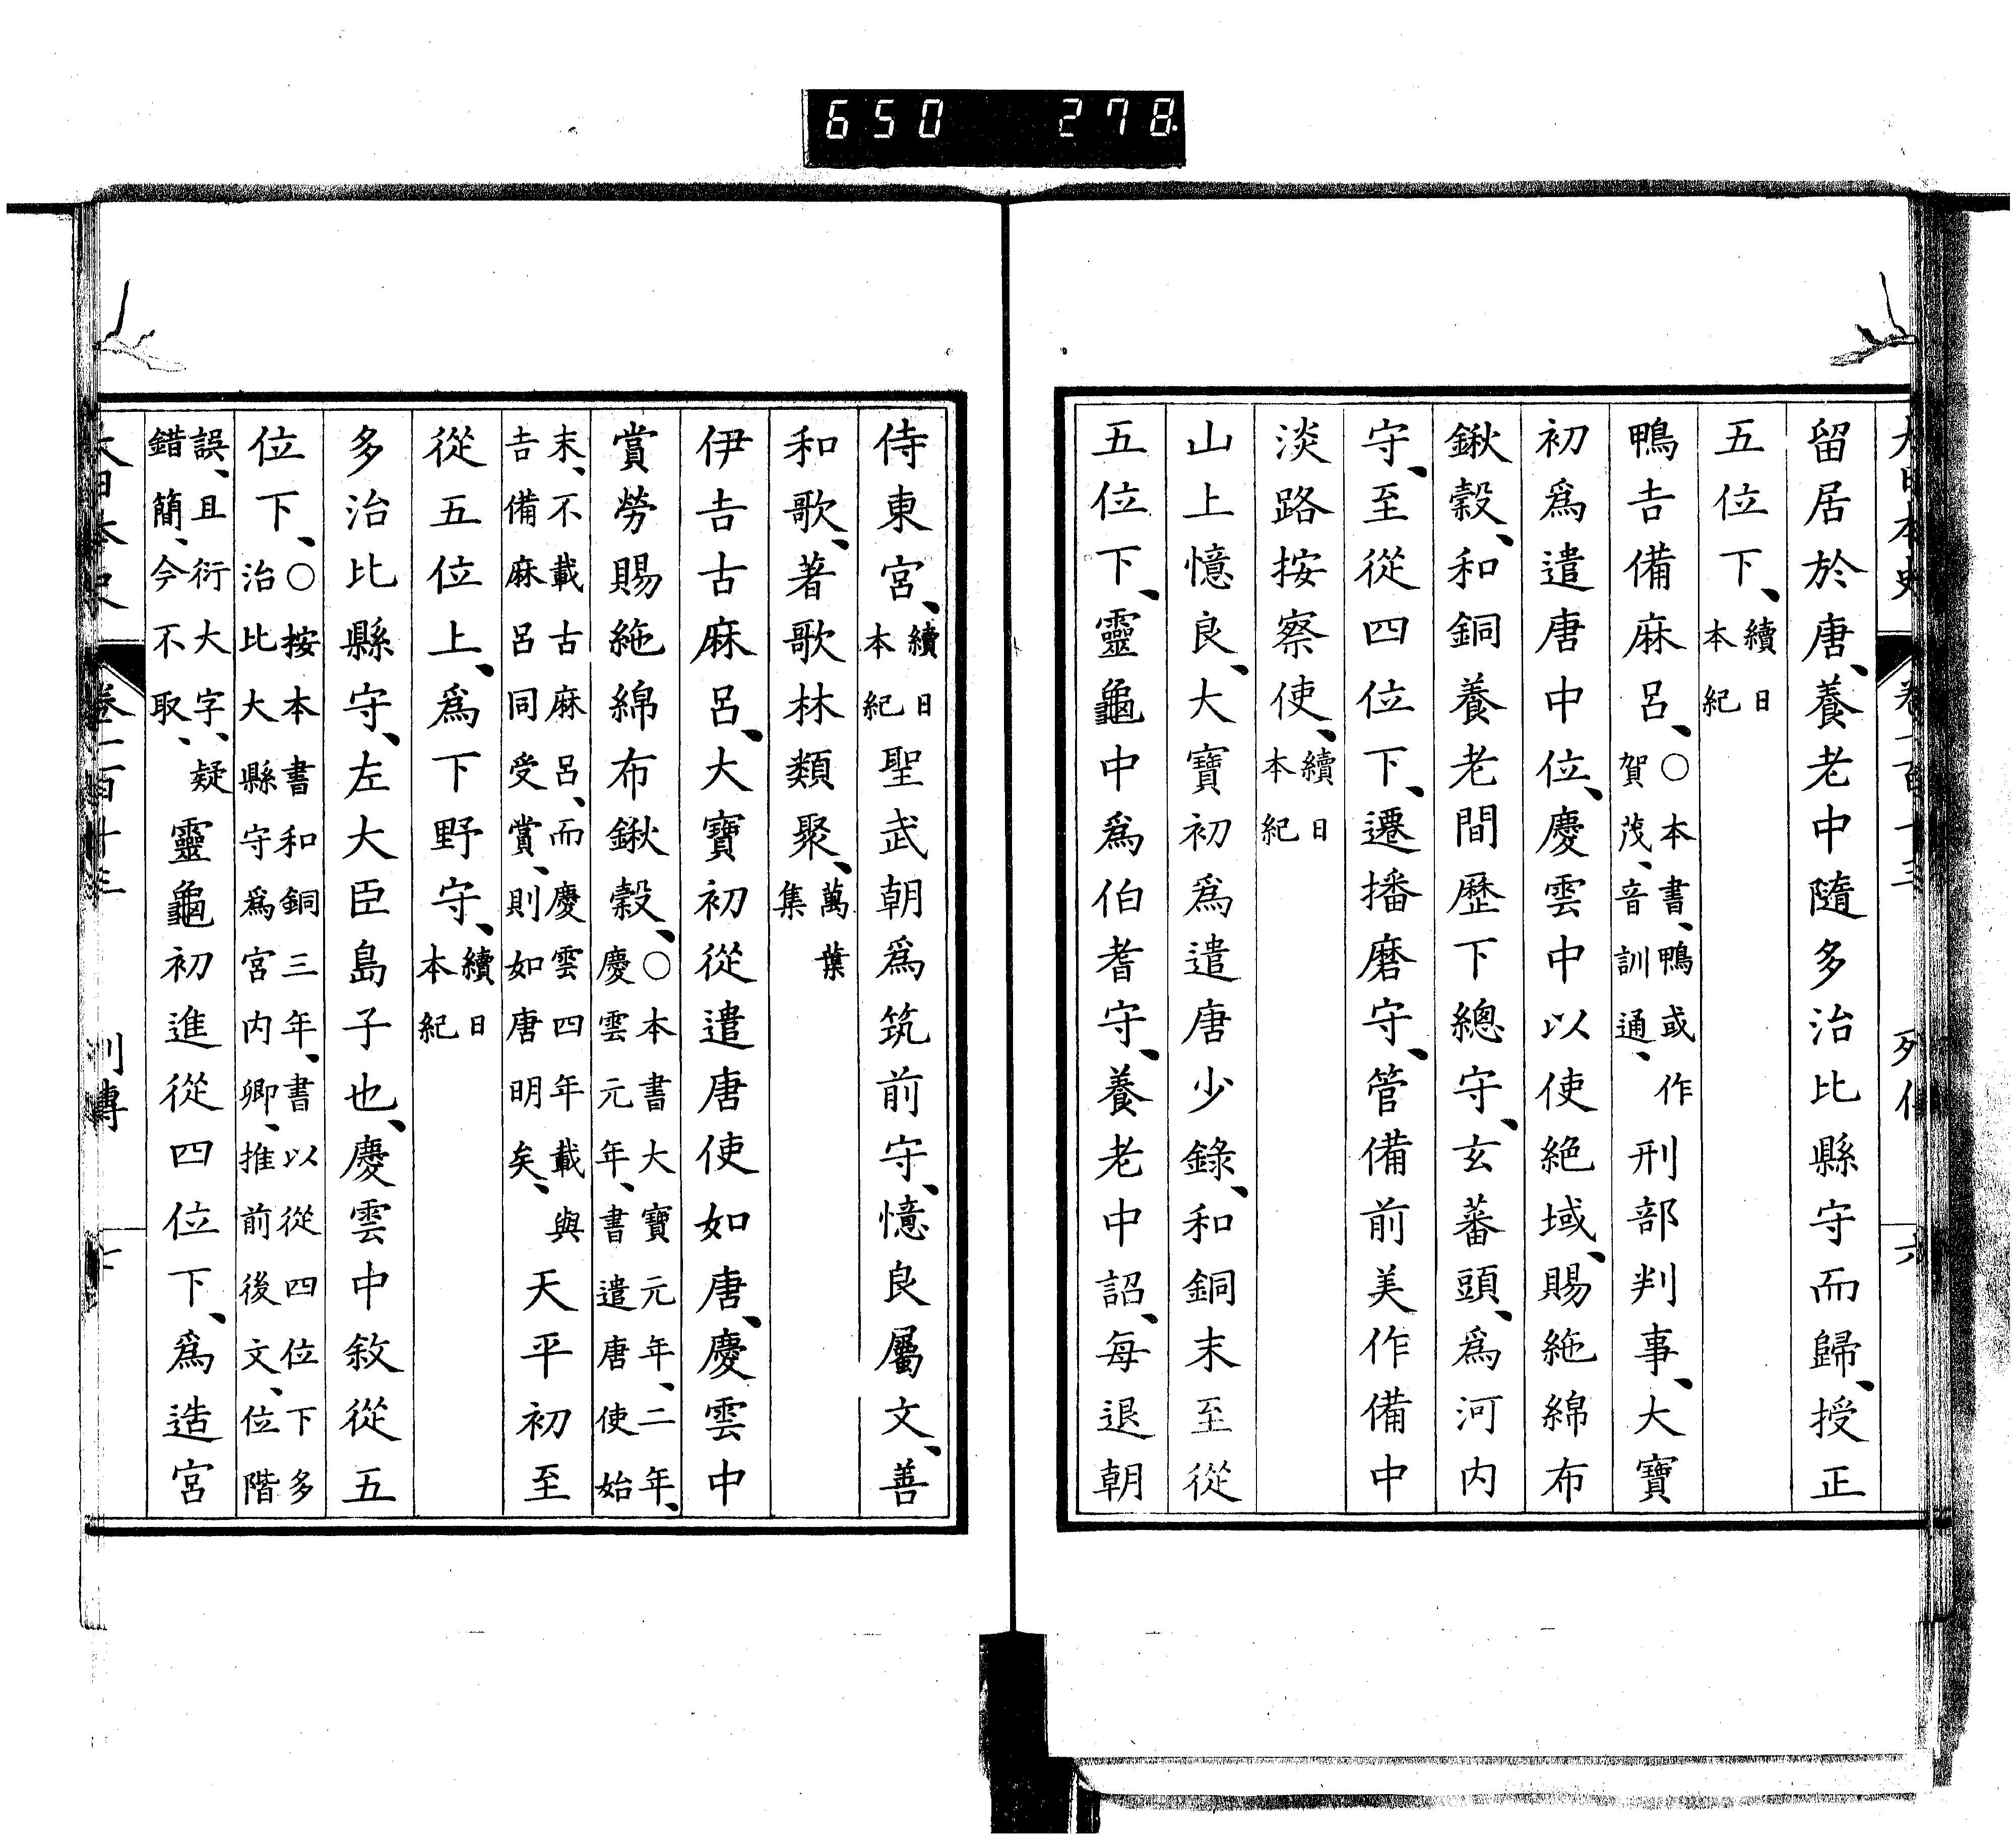 650 278.
大日本史 卷一百十三 列傳 六
留居於唐、養老中隨多治比縣守而歸、授正
五位下、續日本紀
鴨吉備麻呂、○本書、鴨或作賀茂、音訓通、刑部判事、大寶
初爲遣唐中位、慶雲中以使絶域、賜絁綿布
鍬穀、和銅養老間歷下總守、玄蕃頭、爲河内
守、至從四位下、遷播磨守、管備前美作備中
淡路按察使、續日本紀
山上憶良、大寶初爲遣唐少錄、和銅末至從
五位下、靈龜中爲伯耆守、養老中詔、每退朝
侍東宮、續日本紀聖武朝爲筑前守、憶良屬文、善
和歌、著歌林類聚、萬葉集
伊吉古麻呂、大寶初從遣唐使如唐、慶雲中
賞勞賜絁綿布鍬穀、○本書大寶元年、二年、慶雲元年、書遣唐使始
末、不載古麻呂、而慶雲四年載與吉備麻呂同受賞、則如唐明矣、天平初至
從五位上、爲下野守、續日本紀
多治比縣守、左大臣島子也、慶雲中敘從五
位下、○按本書和銅三年、書以從四位下多治比大縣守爲宮内卿、推前後文、位階
誤、且衍大字、疑錯簡、今不取、靈龜初進從四位下、爲造宮
大日本史 卷一百十三 列傳 七